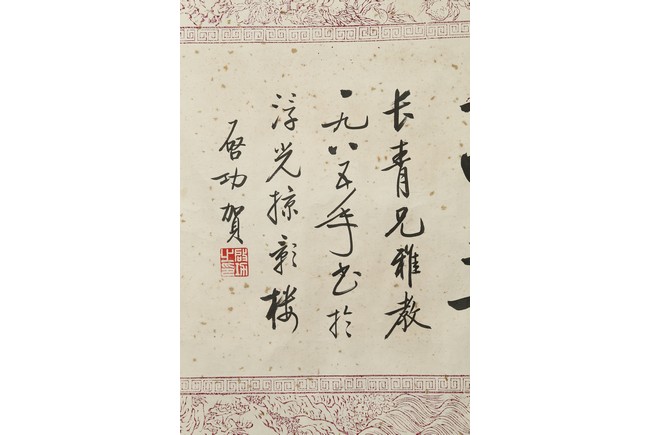 长青兄雅教
一九八五年书於
浮光掠影楼
启功贺
启功之印